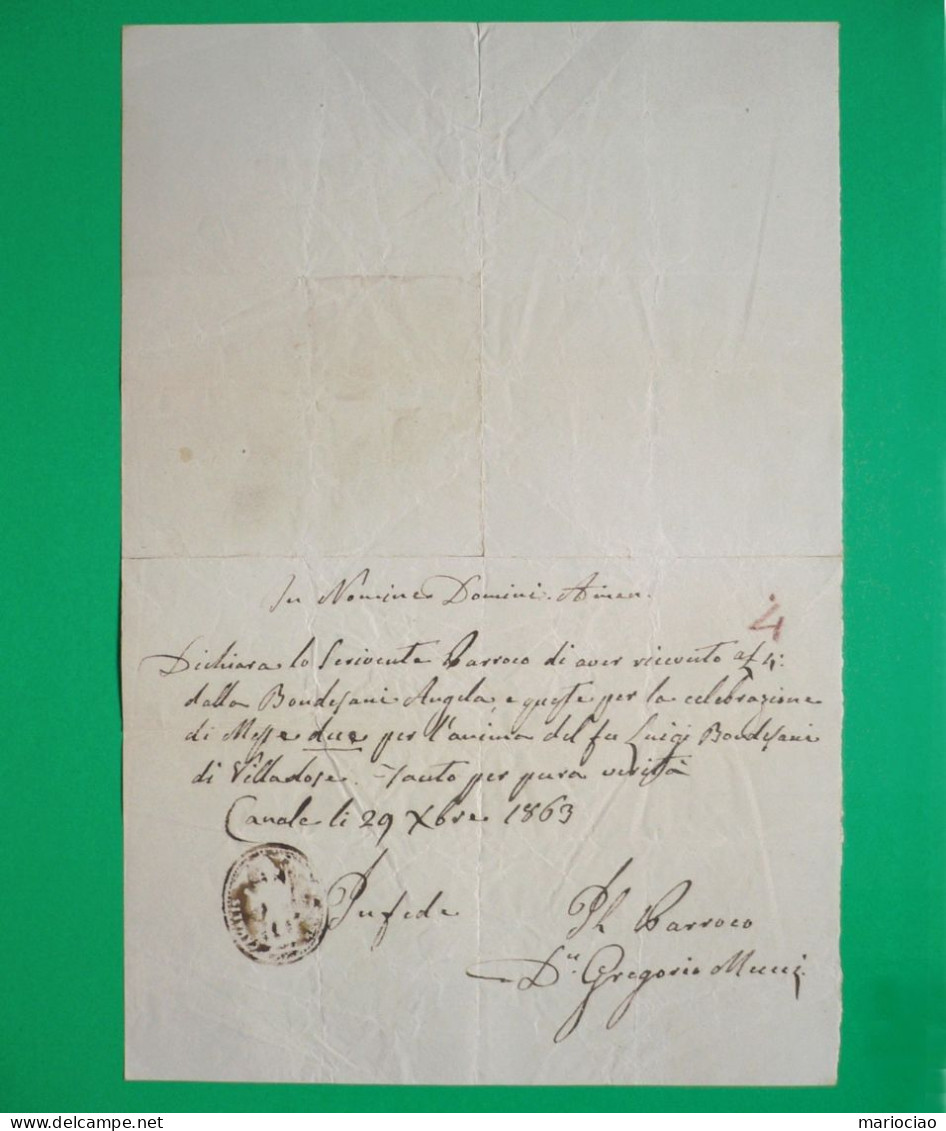 In Nomine Domini. Amen.
4
Dichiara lo Scrivente Parroco di aver ricevuto 4:
dalla Bondesani Angela, e queste per la celebrazione
di Messe due per l'anima del fu Luigi Bondesani
di Villadose. Tanto per pura verità
Canale li 29 Xbre 1863
In fede
Parroco
Dn Gregorio
mariociao